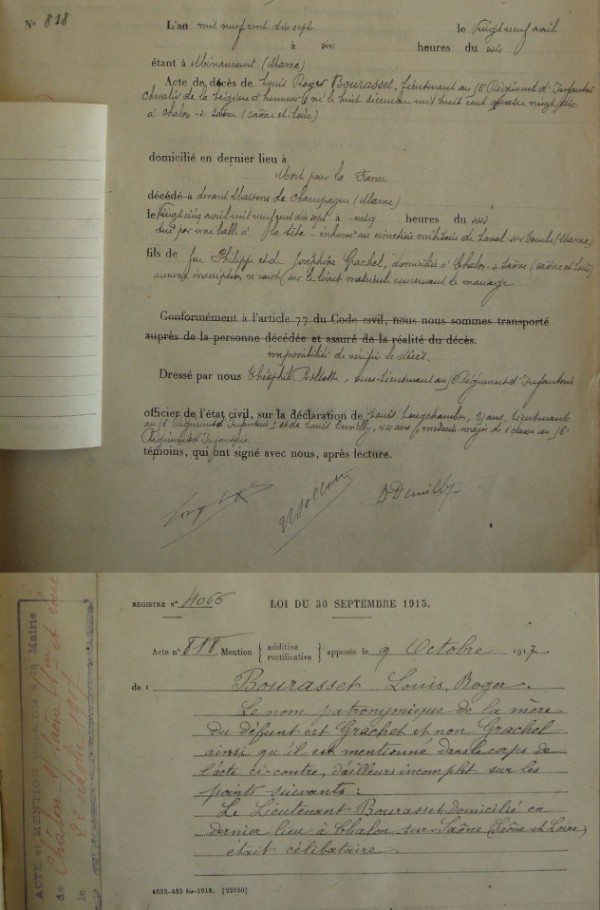 N° 818
L'an mil neuf cent dix sept le vingt-neuf avril
à six heures du soir
étant à Minaucourt (Marne)
Acte de décès de Louis Roger Bourasset, Lieutenant au Régiment d'Infanterie
chevalier de la légion d'honneur, né le huit décembre mil huit cent quatre vingt
à Chalon-s-Saône (Saône-et-Loire)
domicilié en dernier lieu à
Mort pour la France
décédé à devant Maisons de Champagne (Marne)
le vingt cinq avril mil neuf cent dix sept à heures du soir
tué par une balle à la tête - inhumé au cimetière militaire de Laval sur Tourbe (Marne)
fils de feu Philippe et de Joséphine Grachel, domiciliée à Chalon-s-Saône (Saône et Loire)
aucune inscription n'existe sur le livret matricule concernant le mariage
Conformément à l'article 77 du Code civil, nous nous sommes transporté
auprès de la personne décédée et assuré de la réalité du décès.
impossibilité de vérifier le décès.
Dressé par nous Théophile, sous-Lieutenant au Régiment d'Infanterie
officier de l'état civil, sur la déclaration de Louis Longchambon, ans, Lieutenant
au Régiment d'Infanterie et de Louis, 44 ans, médecin major de classe au
Régiment d'Infanterie
témoins, qui ont signé avec nous, après lecture.
REGISTRE N° 4066 LOI DU 30 SEPTEMBRE 1915.
Acte n° 818 Mention { additive rectificative } apposée le 9 Octobre 1917
de : Bourasset Louis, Roger.
Le nom patronymique de la mère
du défunt est Grachet et non Grachel
ainsi qu'il est mentionné dans le corps de
l'acte ci-contre, d'ailleurs incomplet sur les
points suivants :
Le Lieutenant Bourasset domicilié en
dernier lieu à Chalon sur Saône (Saône et Loire)
était célibataire.
ACTE et MENTION à la Mairie
de Châlon s/ Saône
le 22 1917
4532-483 bis-1918. [22830]